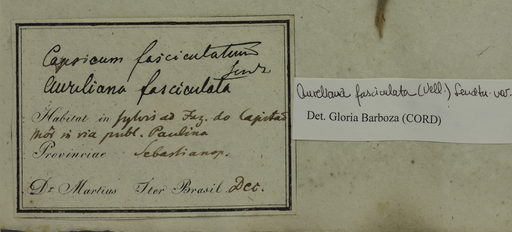 Capsicum fasciculatum
Sendt
Aureliana fasciculata
Habitat in sylvis ad Faz. do Capitão
Mór in via publ. Paulina
Provinciae Sebastianop.
Dr. Martius Iter Brasil. Dec.
Aureliana fasciculata (Vell.) Sendtn. var.
Det. Gloria Barboza (CORD)